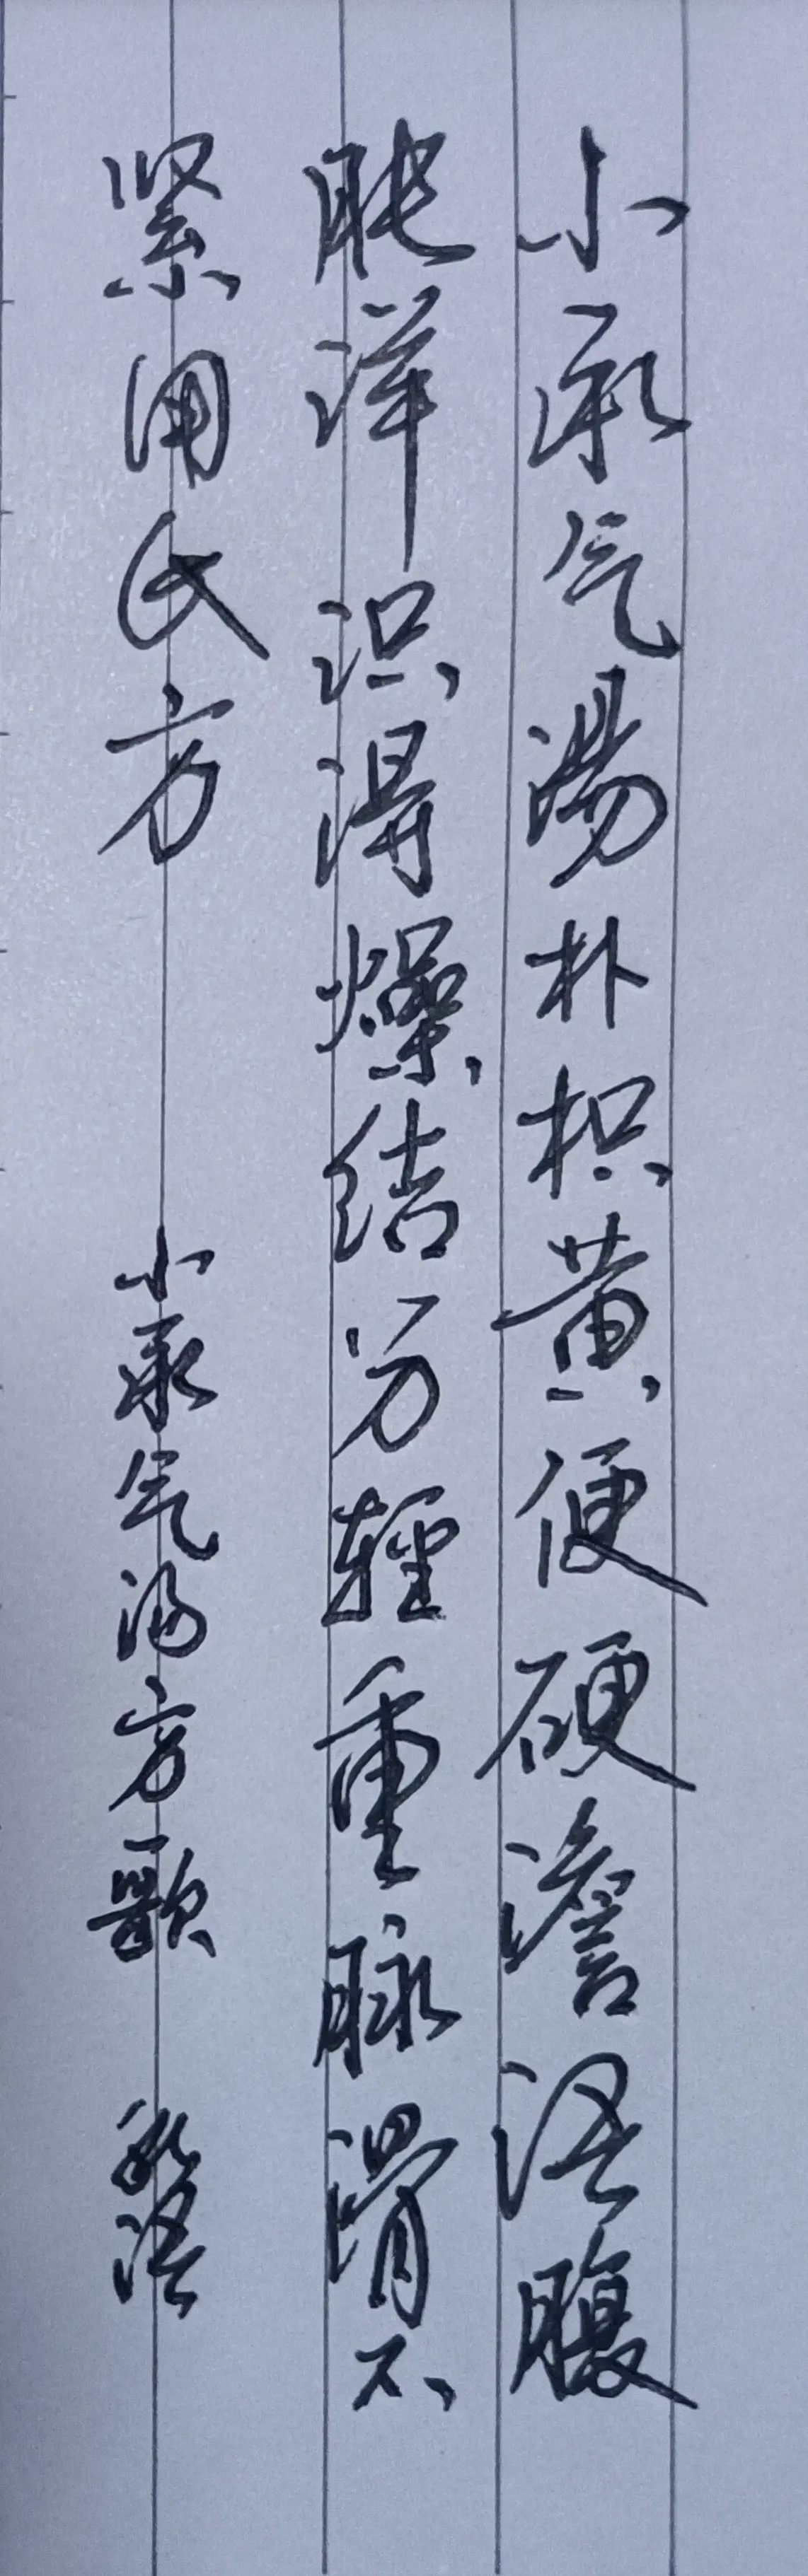 小承气湯朴枳黄便硬谵语腹
胀详识得燥结分輕重脉滑不
紧用方 小承气汤方歌